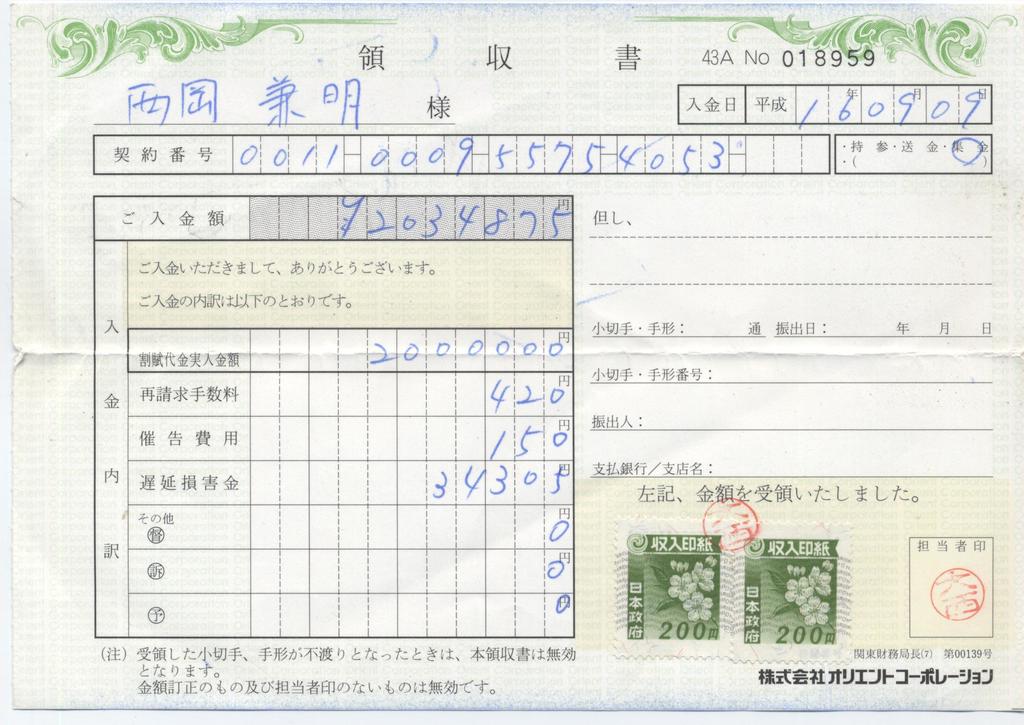 領収書 43A No 018959
西岡 兼明 様
入金日 平成 16年09月09日
契約番号 0011-0009-5575-4053-
・持参・送金・集金
・( )
ご入金額 ¥2034875円
ご入金いただきまして、ありがとうございます。
ご入金の内訳は以下のとおりです。
入金内訳
割賦代金実入金額 2000000円
再請求手数料 420円
催告費用 150円
遅延損害金 34305円
その他
督 0円
訴 0円
予 0円
但し、
小切手・手形: 通 振出日: 年 月 日
小切手・手形番号:
振出人:
支払銀行/支店名:
左記、金額を受領いたしました。
収入印紙 日本政府 200円
収入印紙 日本政府 200円
担当者印
関東財務局長(7) 第00139号
株式会社オリエントコーポレーション
(注) 受領した小切手、手形が不渡りとなったときは、本領収書は無効
となります。
金額訂正のもの及び担当者印のないものは無効です。